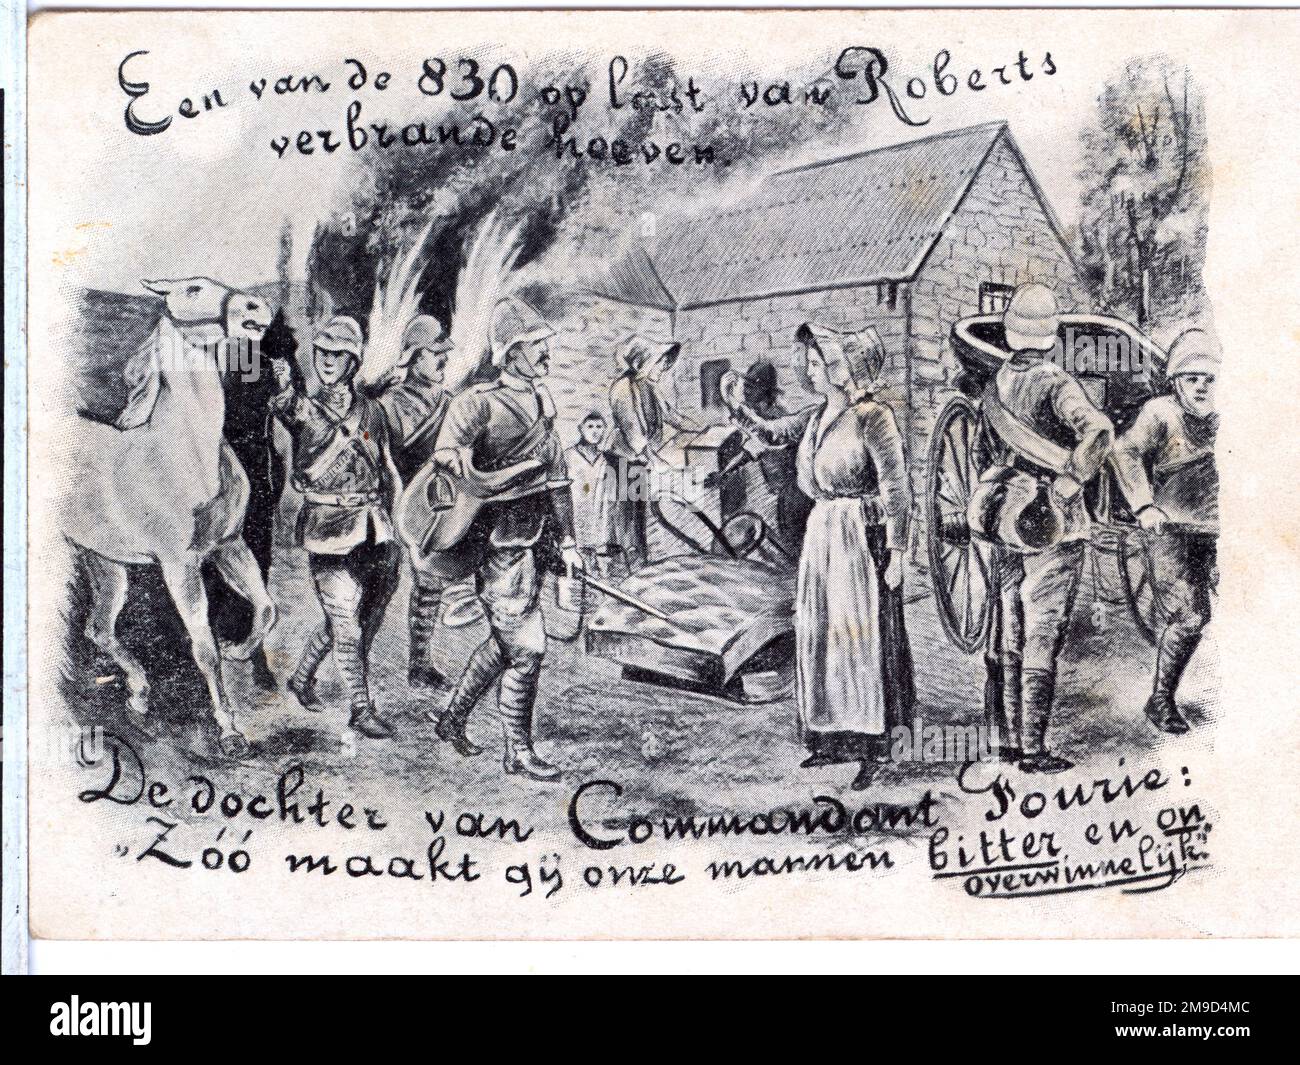 Een van de 830 op last van Roberts
verbrande hoeven.
De dochter van Commandant Fourie:
„Zóó maakt gij onze mannen bitter en on
overwinnelijk."
alamy
Image ID: 2M9D4MC
www.alamy.com